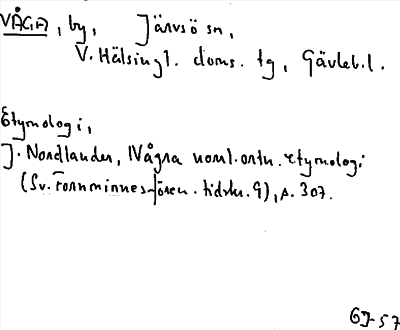 VÅGA, by, Järvsö sn,
V. Hälsingl. doms. tg, Gävleb. l.
Etymologi,
J. Nordlander, Några norrl. ortn. etymologi
(Sv. Fornminnesfören. tidskr. 9), s. 307.
GJ-57